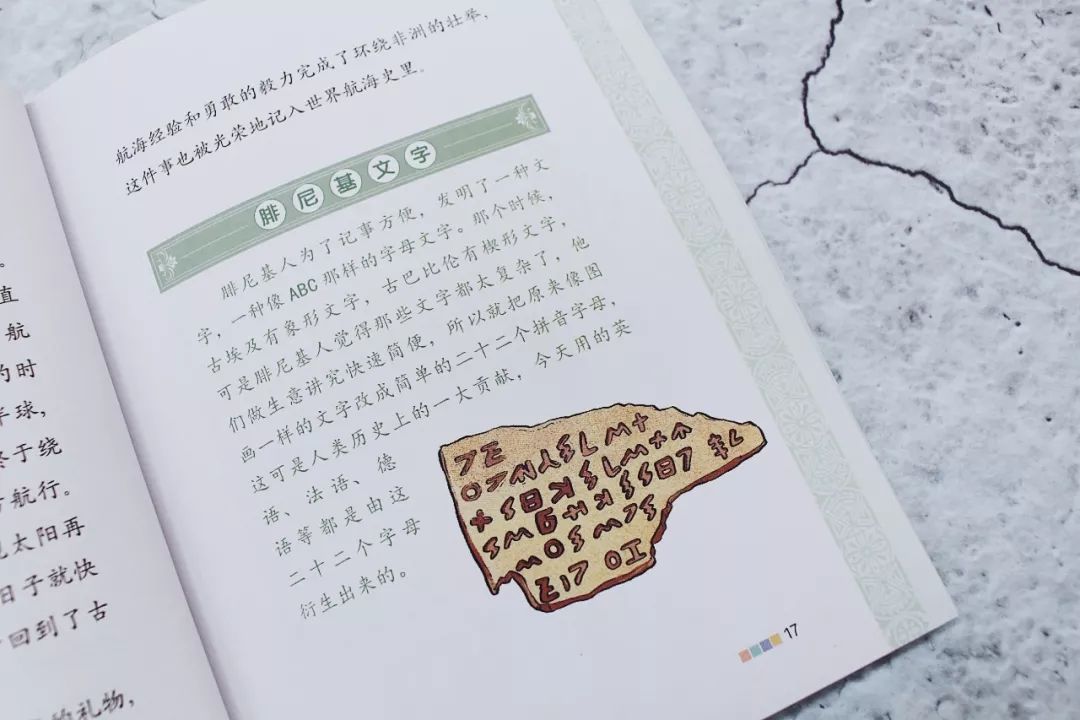 。
直
航
的时
半球，
终于绕
航行。
太阳再
日子就快
回到了古
的礼物，
航海经验和勇敢的毅力完成了环绕非洲的壮举，
这件事也被光荣地记入世界航海史里。
腓尼基文字
腓尼基人为了记事方便，发明了一种文
字，一种像ABC那样的字母文字。那个时候，
古埃及有象形文字，古巴比伦有楔形文字，
可是腓尼基人觉得那些文字都太复杂了，他
们做生意讲究快速简便，所以就把原来像图
画一样的文字改成简单的二十二个拼音字母，
这可是人类历史上的一大贡献，今天用的英
语、法语、德
语等都是由这
二十二个字母
衍生出来的。
17